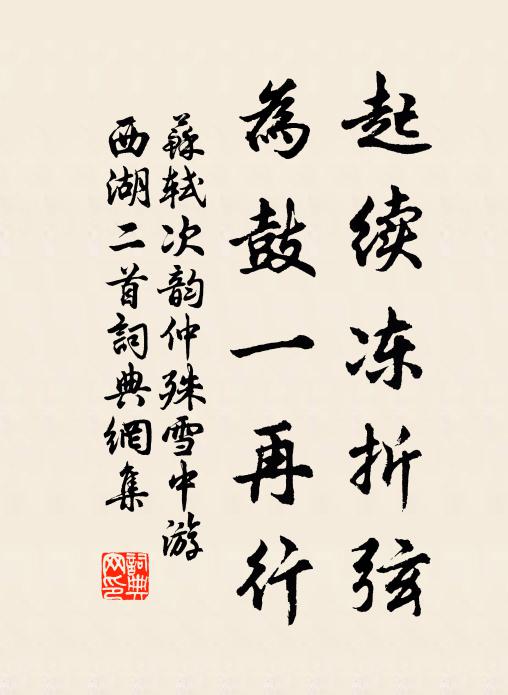 起续冻折弦
為鼓一再行
蘇轼次韵仲殊雪中游
西湖二首詞典網集
詞典
网印